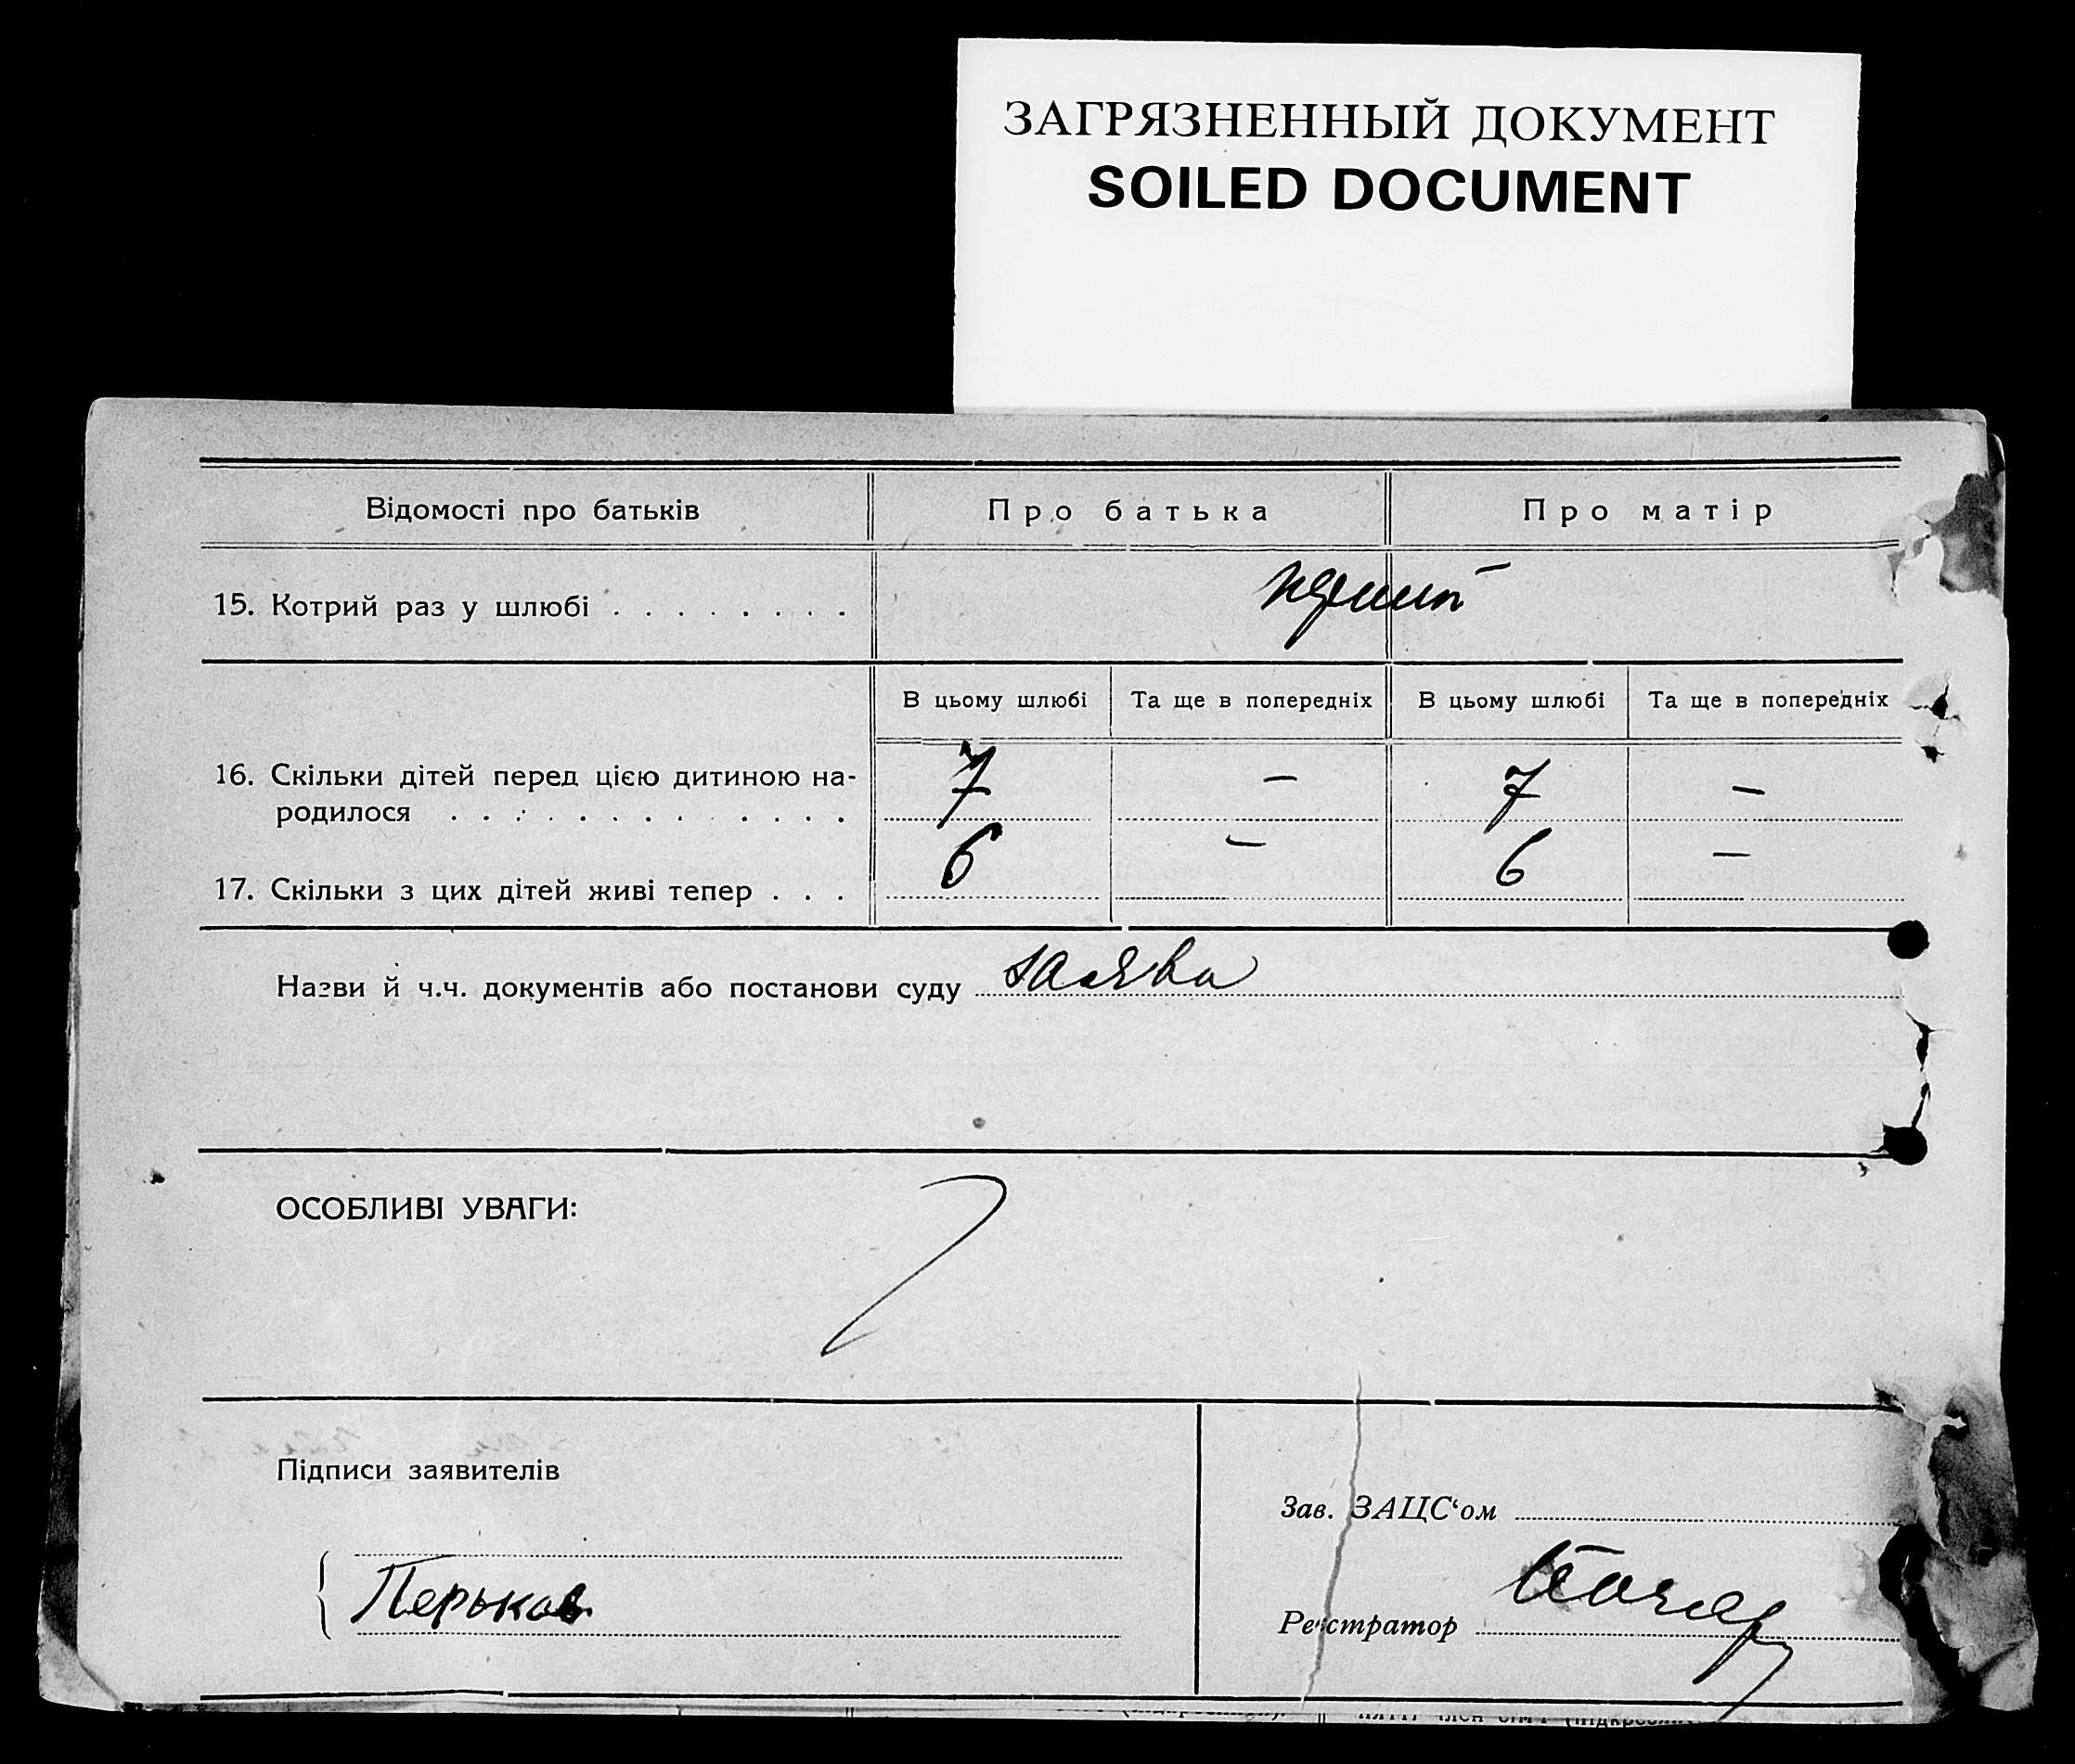 ЗАГРЯЗНЕННЫЙ ДОКУМЕНТ
SOILED DOCUMENT
Відомості про батьків Про батька Про матір
15. Котрий раз у шлюбі . . . . . . . .
В цьому шлюбі Та ще в попередніх В цьому шлюбі Та ще в попередніх
16. Скільки дітей перед цією дитиною на-
родилося . . . . . . . . . . . . . 7 – 7 –
17. Скільки з цих дітей живі тепер . . . 6 – 6 –
Назви й ч.ч. документів або постанови суду заява
ОСОБЛИВІ УВАГИ:
Підписи заявителів
Зав. ЗАЦС‘ом
Перьков
Реєстратор